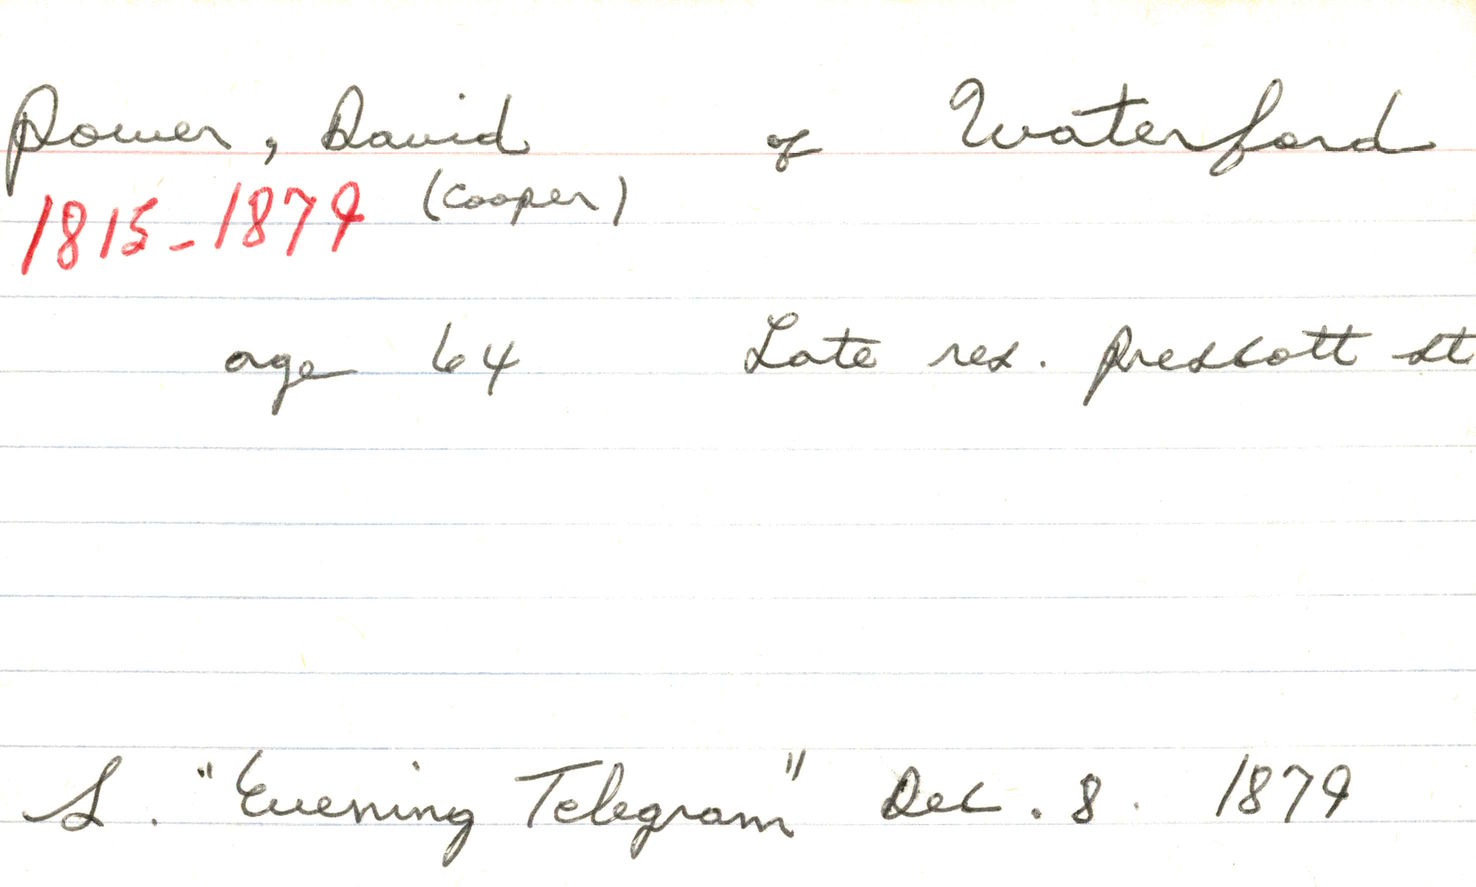 Power, David of Waterford
1815-1879 (Cooper)
age 64 Late res. Prescott st
S. "Evening Telegram" Dec. 8. 1879